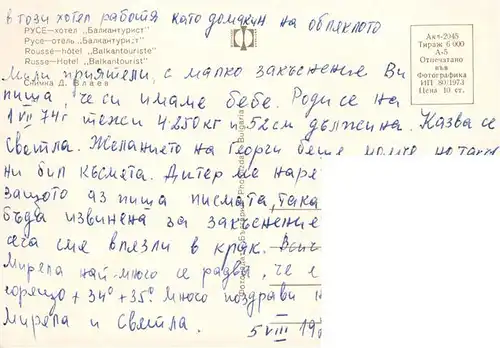 в този хотел работя като домакин на облеклото
РУСЕ—хотел „Балкантурист"
Русе—отель „Балкантурист"
Rousse—hôtel "Balkantouriste"
Russe—Hotel "Balkantourist"
Снимка Д. Влаев
Акч-2045
Тираж 6 000
А-5
Отпечатано
във
Фотографика
ИП 80/1973
Цена 10 ст.
Мили приятели, с малко закъснение Ви
пиша, че си имаме бебе. Роди се на
1 VII 74г тежи 4.250кг и 52см дължина. Казва се
Светла. Желанието на Георги беше но
ни бил късмета. Дитер ме наре
защото аз пиша писмата, така
бъда извинена за закъснение
сега сме влязли в крак. Всич
Мирела най-много се радва, че
горещо +34° +35°. Много поздрави
Мирела и Светла.
5 VIII 19
Фотоиздат България Photoizdat Bulgaria